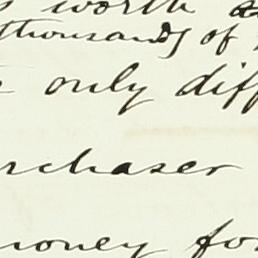 worth
thousands of
only diff
rchaser
money for